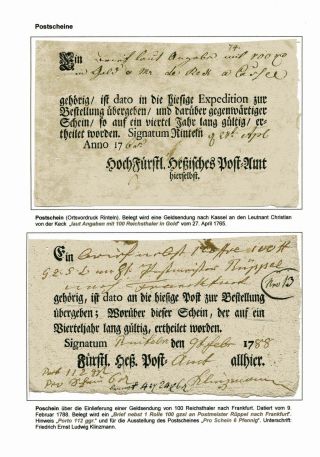 Postscheine
Ein Brief laut Angabe mit 100 
in Geld a Mr. de Keck a Cassel
gehörig/ ist dato in die hiesige Expedition zur
Bestellung übergeben/ und darüber gegenwärtiger
Schein/ so auf ein viertel Jahr lang gültig/ er-
theilet worden. Signatum Rinteln
Anno 176
Hoch-Fürstl. Heßisches Post-Amt
hierselbst.
Postschein (Ortsvordruck Rinteln). Belegt wird eine Geldsendung nach Kassel an den Leutnant Christian
von der Keck „laut Angaben mit 100 Reichsthaler in Gold" vom 27. April 1765.
Ein Brief nebst 1 Rolle 100 
Postmeister Rüppel
nach Franckfurt
gehörig, ist dato an die hiesige Post zur Bestellung
übergeben; Worüber dieser Schein, der auf ein
Vierteljahr lang gültig, ertheilet worden.
Signatum Rinteln den 9 Febr 1788
Fürstl. Heß. Post-Amt allhier.
Pro Schein 6
Klinzmann
Poschein über die Einlieferung einer Geldsendung von 100 Reichsthaler nach Frankfurt. Datiert vom 9.
Februar 1788. Belegt wird ein „Brief nebst 1 Rolle 100 gzsl an Postmeister Rüppel nach Frankfurt".
Hinweis „Porto 112 ggr." und für die Ausstellung des Postscheines „Pro Schein 6 Pfennig". Unterschrift:
Friedrich Ernst Ludwig Klinzmann.